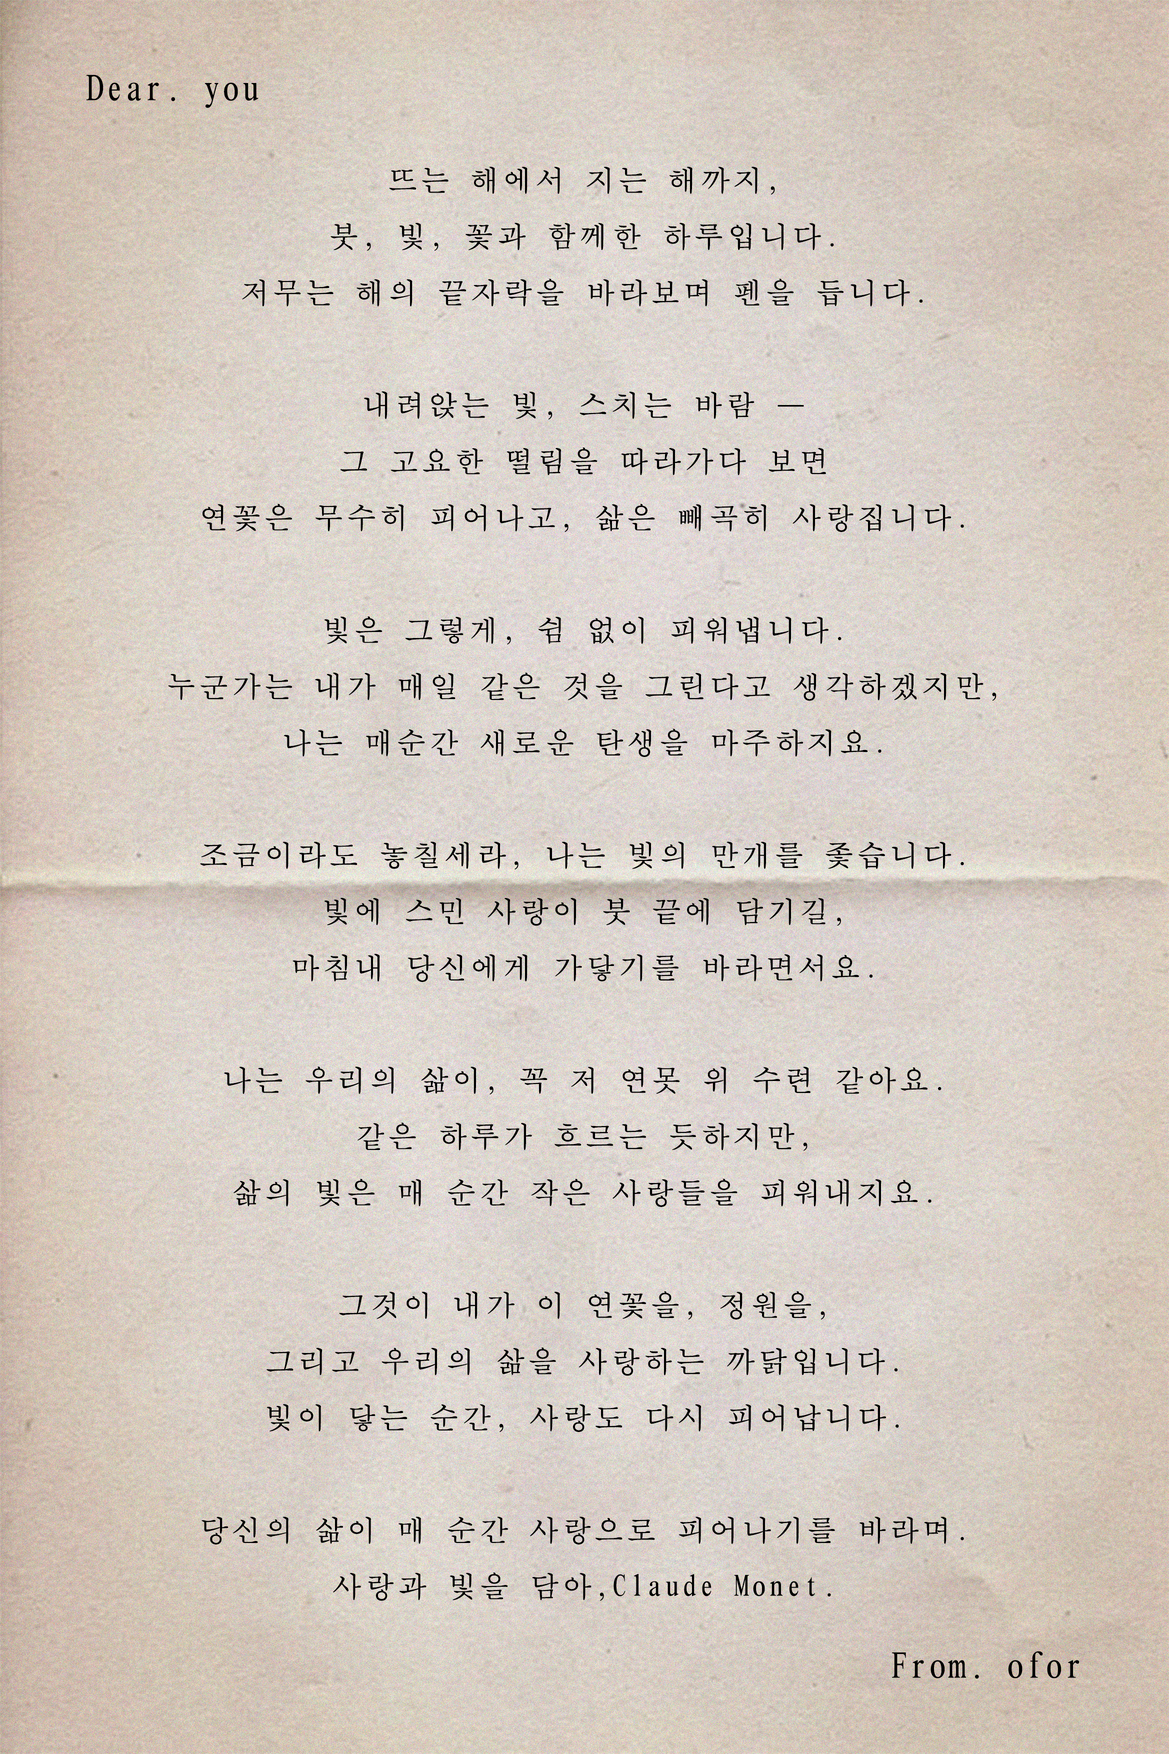 Dear. you
뜨는 해에서 지는 해까지,
붓, 빛, 꽃과 함께한 하루입니다.
저무는 해의 끝자락을 바라보며 펜을 듭니다.
내려앉는 빛, 스치는 바람 —
그 고요한 떨림을 따라가다 보면
연꽃은 무수히 피어나고, 삶은 빼곡히 사랑집니다.
빛은 그렇게, 쉼 없이 피워냅니다.
누군가는 내가 매일 같은 것을 그린다고 생각하겠지만,
나는 매순간 새로운 탄생을 마주하지요.
조금이라도 놓칠세라, 나는 빛의 만개를 좇습니다.
빛에 스민 사랑이 붓 끝에 담기길,
마침내 당신에게 가닿기를 바라면서요.
나는 우리의 삶이, 꼭 저 연못 위 수련 같아요.
같은 하루가 흐르는 듯하지만,
삶의 빛은 매 순간 작은 사랑들을 피워내지요.
그것이 내가 이 연꽃을, 정원을,
그리고 우리의 삶을 사랑하는 까닭입니다.
빛이 닿는 순간, 사랑도 다시 피어납니다.
당신의 삶이 매 순간 사랑으로 피어나기를 바라며.
사랑과 빛을 담아,Claude Monet.
From. ofor